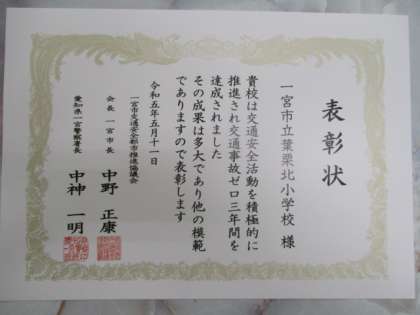 表彰状
一宮市立葉栗北小学校 様
貴校は交通安全活動を積極的に
推進され交通事故ゼロ三年間を
達成されました
その成果は多大であり他の模範
でありますので表彰します
令和五年五月十一日
一宮市交通安全都市推進協議会
会長 一宮市長 中野 正康
愛知県一宮警察署長 中神 一明